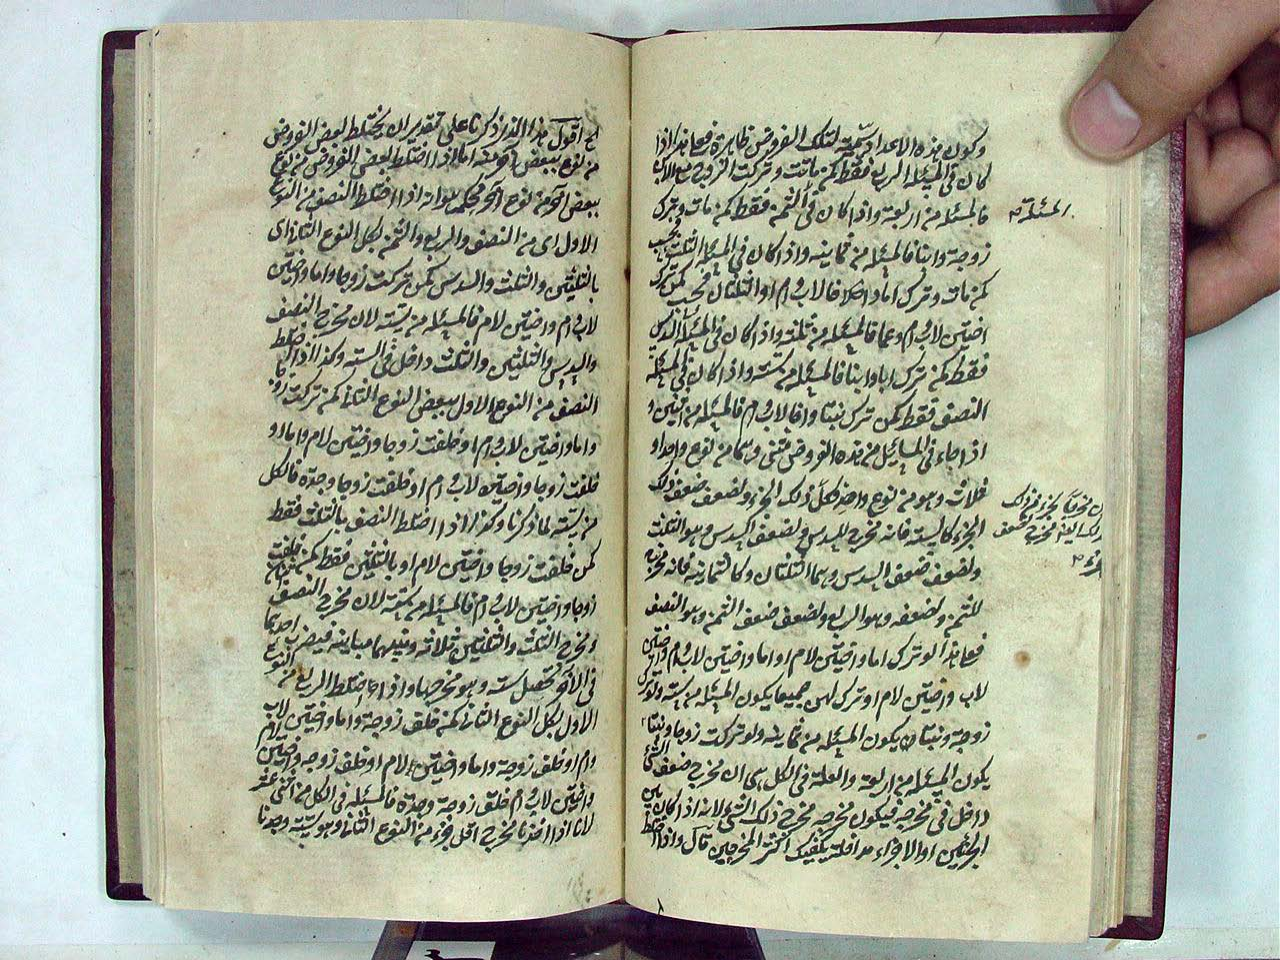 وكون هذه الاعداد سمية لتلك الفروض ظاهرة فعلى هذا اذا
كان في المسئلة الربع فقط كمن ماتت وتركت الزوج مع الابن
فالمسئلة من اربعة واذا كان في الثمن فقط كمن مات وترك
المسئلة
زوجة وابنا فالمسئلة من ثمانية واذا كان في المسئلة الثلث
كمن مات وترك اما واخا لاب وام او الثلثان كمن ترك
اختين لاب وام وعما فالمسئلة من ثلثة واذا كان في المسئلة السدس
فقط كمن ترك ابا وابنا فالمسئلة من ستة واذا كان في المسئلة
النصف فقط كمن ترك بنتا واخا لاب وام فالمسئلة من اثنين و
اذا جاء في المسائل من هذه الفروض مثنى وهما من نوع واحد او
ثلاث وهو من نوع واحد فكل ذلك الجزء ولضعف ضعف ذلك
الجزء كالستة فانه مخرج للسدس ولضعف السدس وهو الثلث
ولضعف ضعف السدس وهما الثلثان وكالثمانية فانه مخرج
للثمن ولضعفه وهو الربع ولضعف ضعف الثمن وهو النصف
فعلى هذا لو ترك اما واختين لام او اما واختين لاب وام
لاب واختين لام او ترك لهن جميعا يكون المسئلة من ستة ولو ترك
زوجة وبنتا يكون المسئلة من ثمانية ولو تركت زوجا وبنتا
يكون المسئلة من اربعة والعلة في الكل هي ان مخرج ضعف الشئ
داخل في مخرجه فيكون مخرجه مخرج ذلك الشئ ولانه اذا كان بين
الجزئين او الاجزاء مداخلة يكفيك اكثر المخرجين قال واذا اختلط
اقول هذا الذي ذكرنا على تقدير ان يختلط بعض الفروض
من نوع ببعض اما اذا اختلط بعض الفروض من نوع
ببعض آخر من نوع آخر فحكمه هو انه اذا اختلط النصف من النوع
الاول اى من النصف والربع والثمن بكل النوع الثانى اى
بالثلثين والثلث والسدس كمن تركت زوجا واما واختين
لاب وام واختين لام فالمسئلة من ستة لان مخرج النصف
والسدس والثلثين والثلث داخل في الستة وكذا اذا اختلط
النصف من النوع الاول ببعض النوع الثانى كمن تركت زوجا
واما واختين لاب وام او خلفت زوجا واختين لام واما او
خلفت زوجا واختين لاب وام او خلفت زوجا وجدة فالكل
من ستة لما ذكرنا وكذا اذا اختلط النصف بالثلث فقط
كمن خلفت زوجا واختين لام او بالثلثين فقط كمن خلفت
زوجا واختين لاب وام فالمسئلة من ستة لان مخرج النصف
ومخرج الثلث والثلثين ثلاثة وبينهما مباينة فيضرب احدهما
في الآخر تحصل ستة وهو مخرجها واذا اختلط الربع من النوع
الاول بكل النوع الثانى كمن خلف زوجة واما واختين لاب
وام او خلف زوجة واما واختين لام او خلف زوجة واختين
واختين لاب وام خلف زوجة وجدة فالمسئلة في الكل من اثنى عشر
لانا اذا اخذنا مخرج اقل جزء من النوع الثانى وهو ستة وجدنا